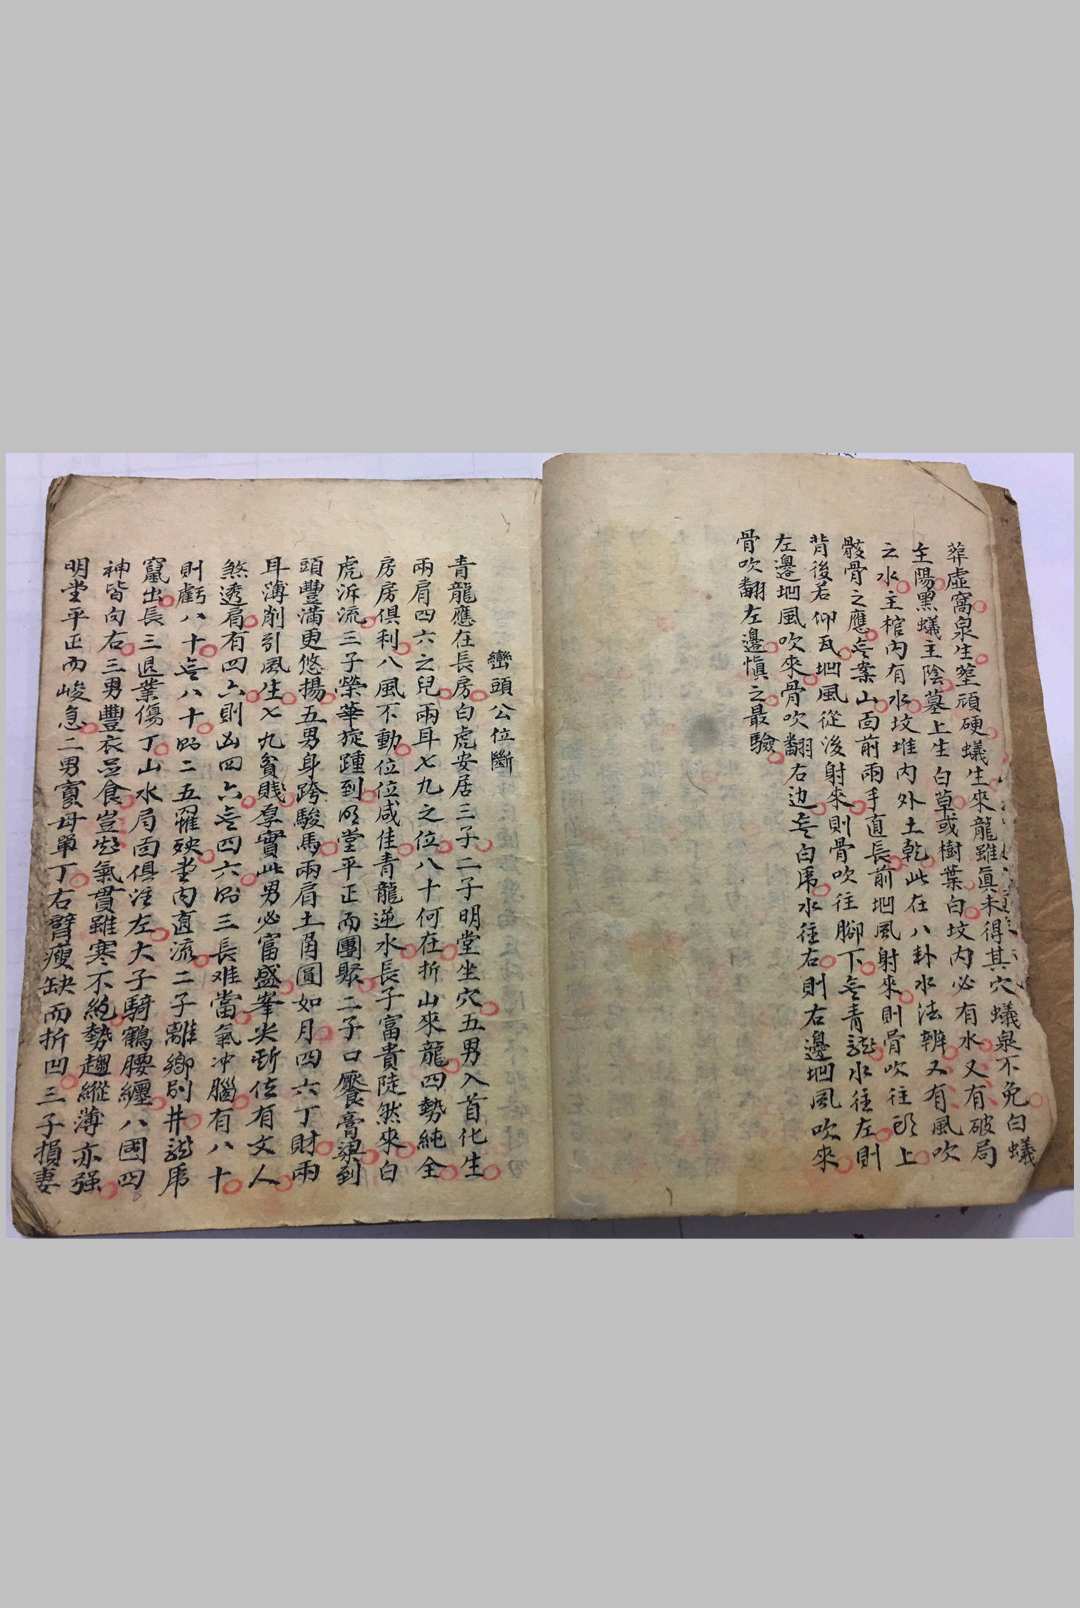 葬虛窩泉生堃頑硬蟻生來龍雖眞未得其穴蟻泉不免白蟻
主陽黑蟻主陰墓上生白草或樹葉白坟內必有水又有破局
之水主棺內有水坟堆內外土乾此在八卦水法辨又有風吹
骸骨之應无案山面前兩手直長前地風射來則骨吹往頭上
背後若仰瓦地風從後射來則骨吹往腳下无青龍水往左則
左邊地風吹來骨吹翻右边无白虎水往右則右邊地风吹來
骨吹翻左邊愼之最驗
巒頭公位斷
青龍應在長房白虎安居三子二子明堂坐穴五男入首化生
兩肩四六之兒兩耳七九之位八十何在折山來龍四勢純全
房房俱利八風不動位位咸佳青龍逆水長子富貴陡然來白
虎泝流三子榮華旋踵到明堂平正而團聚二子口饜膏粱到
頭豐滿更悠揚五男身跨駿馬兩肩土角圓如月四六丁財兩
耳薄削引風生七九貧賤厚實此男必富盛峯尖斬位有文人
煞透肩有四六則凶四六无四六照三長难當氣冲腦有八十
則虧八十无八十照二五罹殃堂内直流二子離鄉別井龍虎
竄出長三退業傷丁山水局面俱注左大子騎鶴腰纏八國四
神皆向右三男豐衣足食豈些氣貫雖寒不絶勢趨縱薄亦强
明堂平正而峻急二男寡母單丁右臂瘦缺而折凹三子損妻